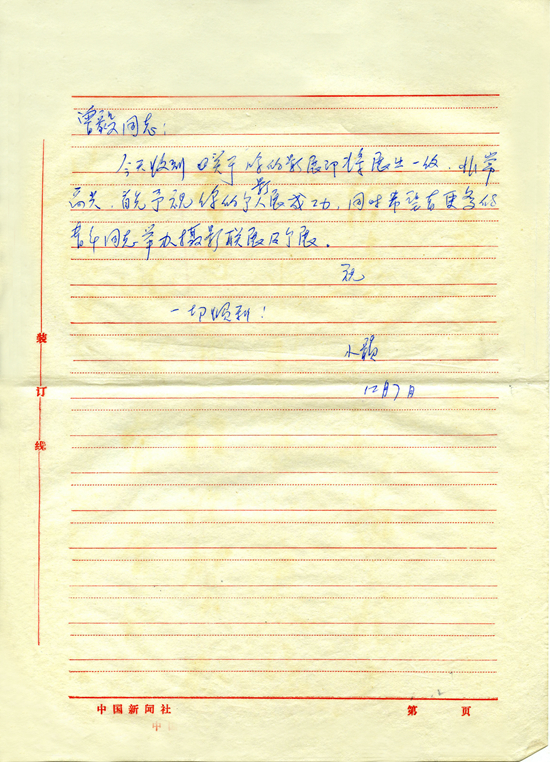 曾毅同志：
今天收到 关于你的影展即将展出一份，非常
高兴，首先予祝你的影展成功，同时希望有更多的
青年同志举办摄影联展及个展。
祝
一切顺利！
小颖
12月7日
装
订
线
中国新闻社 第 页